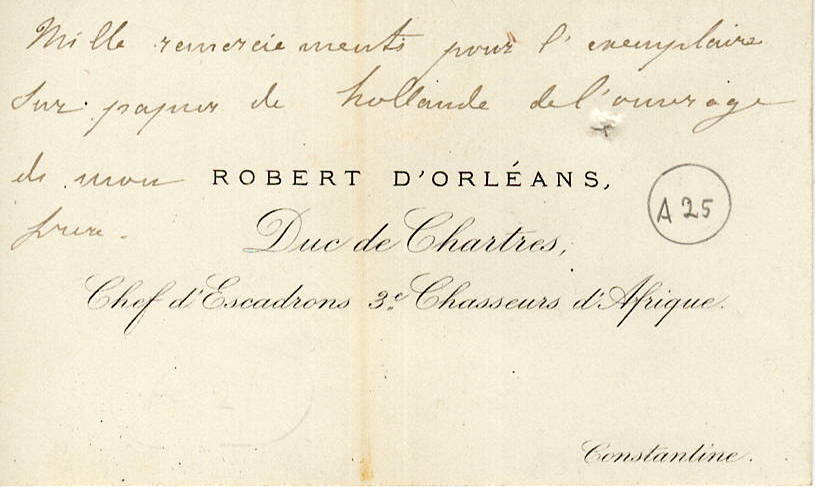 Mille remerciements pour l'exemplaire
sur papier de hollande de l'ouvrage
de mon
ROBERT D'ORLÉANS,
A 25
Duc de Chartres,
Chef d'Escadrons 3e. Chasseurs d'Afrique.
Constantine.